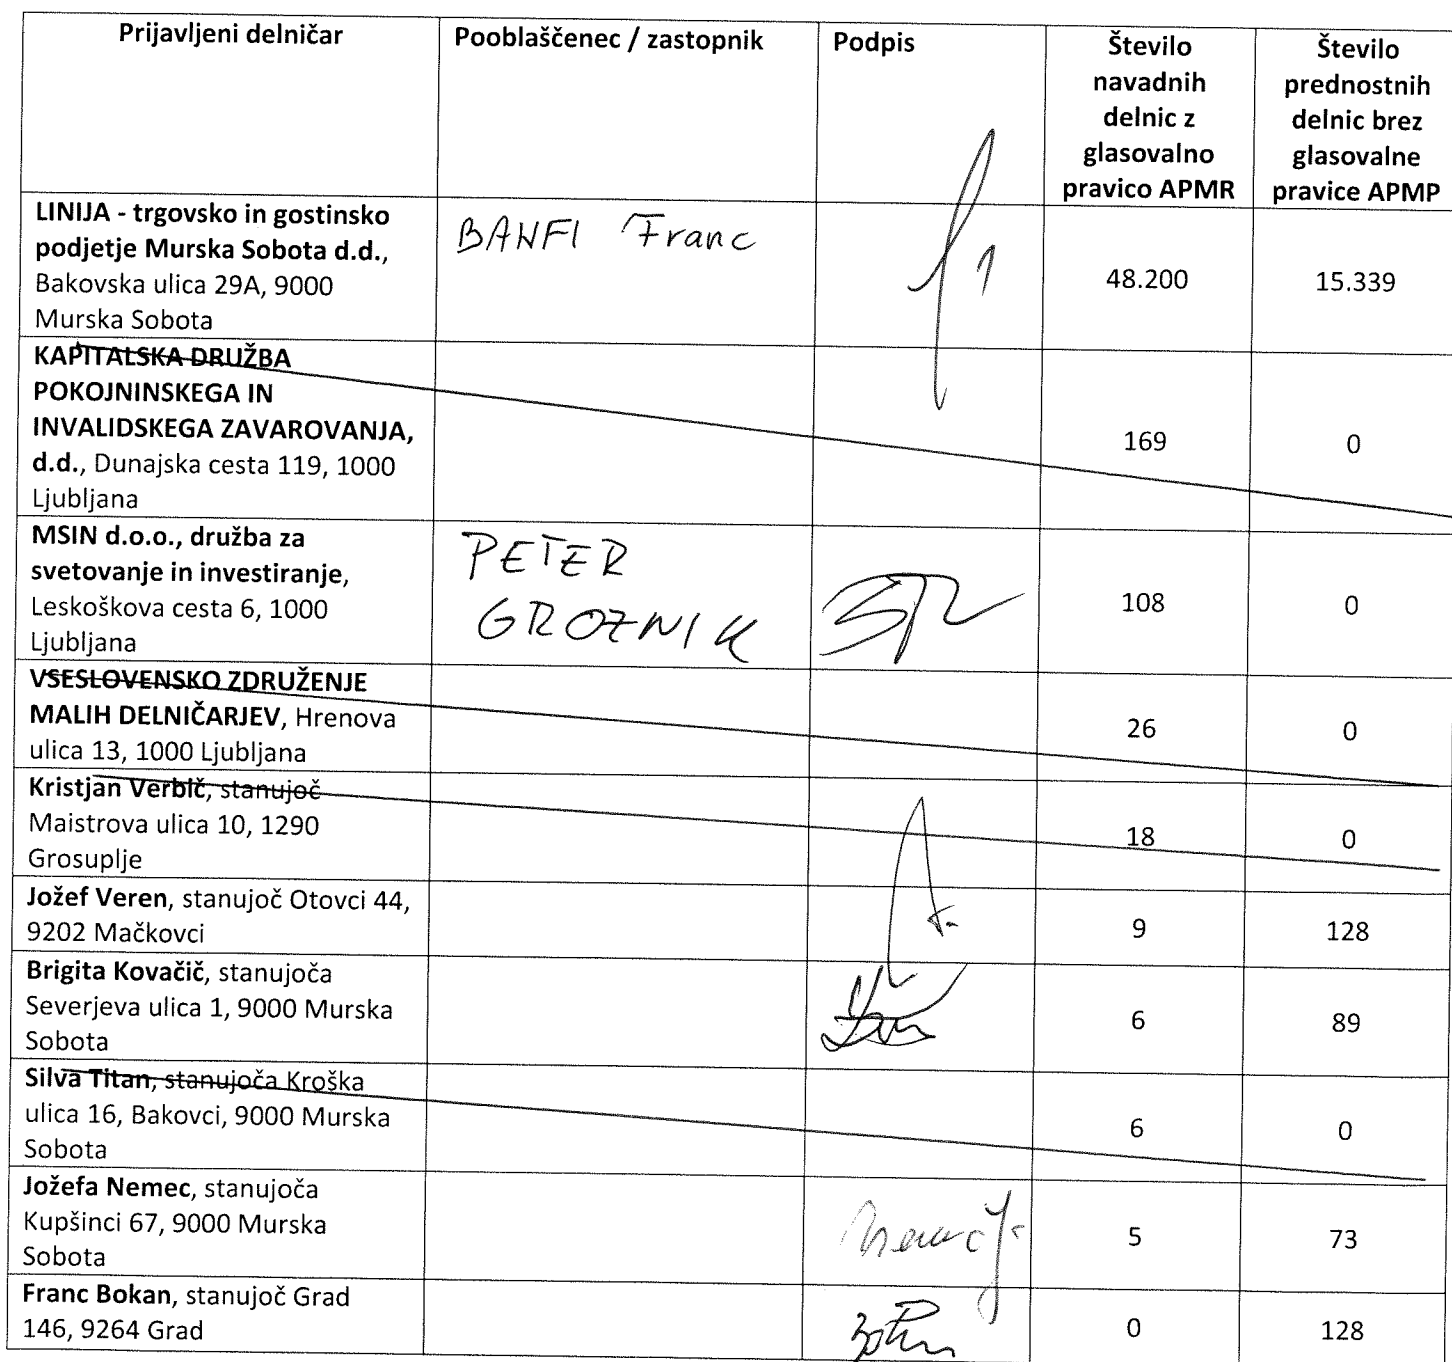 Prijavljeni delničar
Pooblaščenec / zastopnik
Podpis
Število
navadnih
delnic z
glasovalno
pravico APMR
Število
prednostnih
delnic brez
glasovalne
pravice APMP
LINIJA - trgovsko in gostinsko
podjetje Murska Sobota d.d.,
Bakovska ulica 29A, 9000
Murska Sobota
BANFI Franc
48.200
15.339
KAPITALSKA DRUŽBA
POKOJNINSKEGA IN
INVALIDSKEGA ZAVAROVANJA,
d.d., Dunajska cesta 119, 1000
Ljubljana
169
0
MSIN d.o.o., družba za
svetovanje in investiranje,
Leskoškova cesta 6, 1000
Ljubljana
PETER
GROZNIK
108
0
VSESLOVENSKO ZDRUŽENJE
MALIH DELNIČARJEV, Hrenova
ulica 13, 1000 Ljubljana
26
0
Kristjan Verbič, stanujoč
Maistrova ulica 10, 1290
Grosuplje
18
0
Jožef Veren, stanujoč Otovci 44,
9202 Mačkovci
9
128
Brigita Kovačič, stanujoča
Severjeva ulica 1, 9000 Murska
Sobota
6
89
Silva Titan, stanujoča Kroška
ulica 16, Bakovci, 9000 Murska
Sobota
6
0
Jožefa Nemec, stanujoča
Kupšinci 67, 9000 Murska
Sobota
5
73
Franc Bokan, stanujoč Grad
146, 9264 Grad
0
128